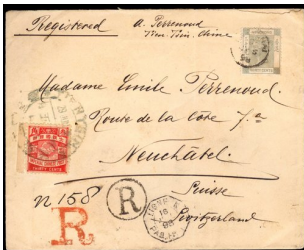 Registered
A. Perrenoud
Tien-Tsin, Chine
Madame Emile Perrenoud
Route de la Côte 7.a
Neuchâtel
Suisse
Switzerland
THIRTY CENTS
n 158
R
R
LIGNE N